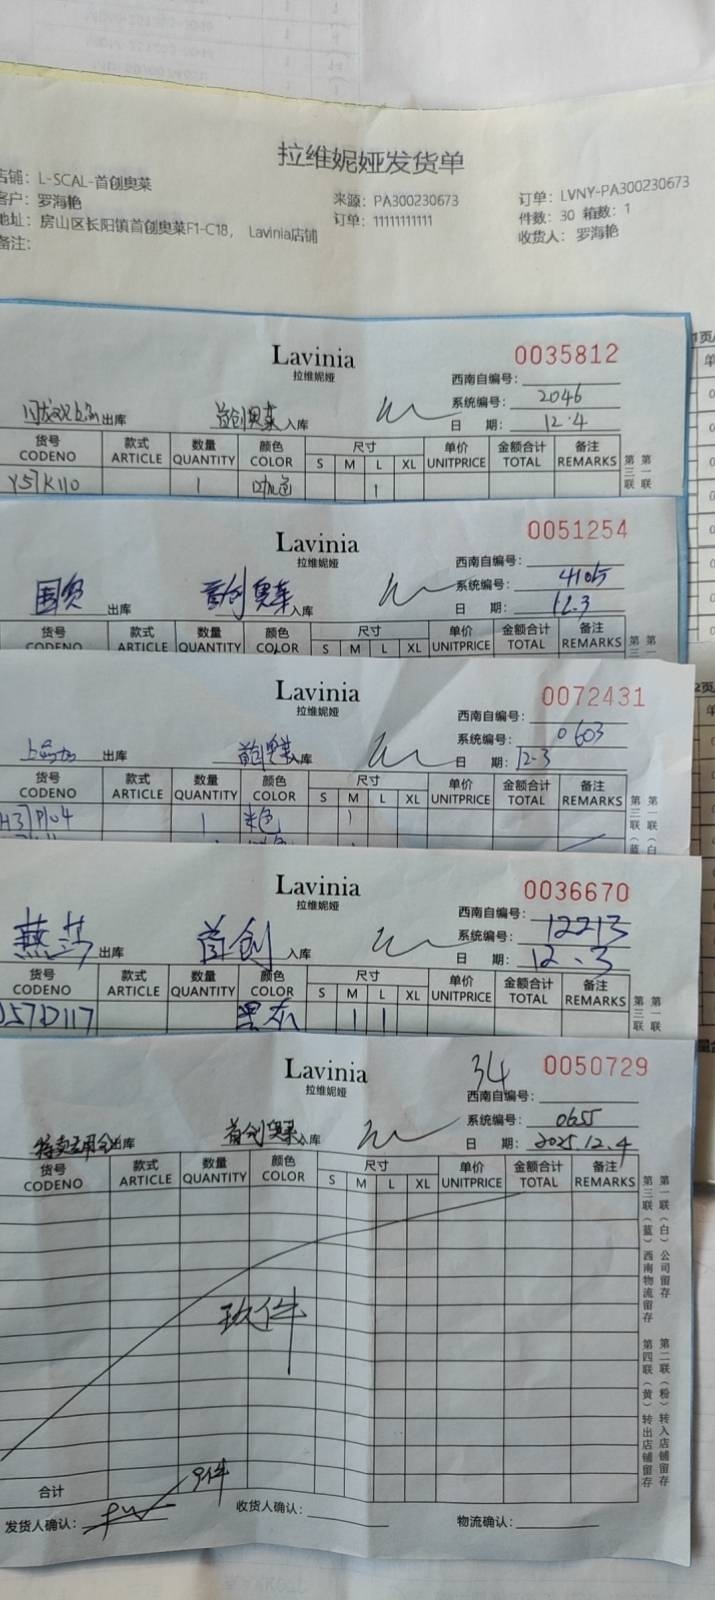 拉维妮娅发货单
店铺：L-SCAL-首创奥莱
客户：罗海艳
来源：PA300230673
订单：LVNY-PA300230673
地址：房山区长阳镇首创奥莱F1-C18， Lavinia店铺
订单：11111111111
件数：30 箱数：1
备注：
收货人：罗海艳
Lavinia
拉维妮娅
0035812
西南自编号：
系统编号：2046
出库 首创奥莱入库
日 期：12.4
货号 款式 数量 颜色 尺寸 单价 金额合计 备注
CODENO ARTICLE QUANTITY COLOR S M L XL UNITPRICE TOTAL REMARKS
第三联 第一联
Y57K110 1 咖色 1
Lavinia
拉维妮娅
0051254
西南自编号：
系统编号：4105
国贸 出库 首创奥莱入库
日 期：12.3
货号 款式 数量 颜色 尺寸 单价 金额合计 备注
CODENO ARTICLE QUANTITY COLOR S M L XL UNITPRICE TOTAL REMARKS
Lavinia
拉维妮娅
0072431
西南自编号：
系统编号：0603
出库 首创奥莱入库
日 期：12.3
货号 款式 数量 颜色 尺寸 单价 金额合计 备注
CODENO ARTICLE QUANTITY COLOR S M L XL UNITPRICE TOTAL REMARKS
第三联（蓝 第一联（白
H37P104 1 米色 1
Lavinia
拉维妮娅
0036670
西南自编号：
系统编号：12213
燕莎出库 首创 入库
日 期：12.3
货号 款式 数量 颜色 尺寸 单价 金额合计 备注
CODENO ARTICLE QUANTITY COLOR S M L XL UNITPRICE TOTAL REMARKS
第三联 第一联
J57D117 黑灰 1 1
Lavinia
拉维妮娅
34
0050729
西南自编号：
系统编号：0655
出库 首创奥莱入库
日 期：2025.12.4
货号 款式 数量 颜色 尺寸 单价 金额合计 备注
CODENO ARTICLE QUANTITY COLOR S M L XL UNITPRICE TOTAL REMARKS
第一联（白）公司留存
第三联（蓝）西南物流留存
第二联（粉）转入店铺留存
第四联（黄）转出店铺留存
玖件
合计 9件
发货人确认：
收货人确认：
物流确认：